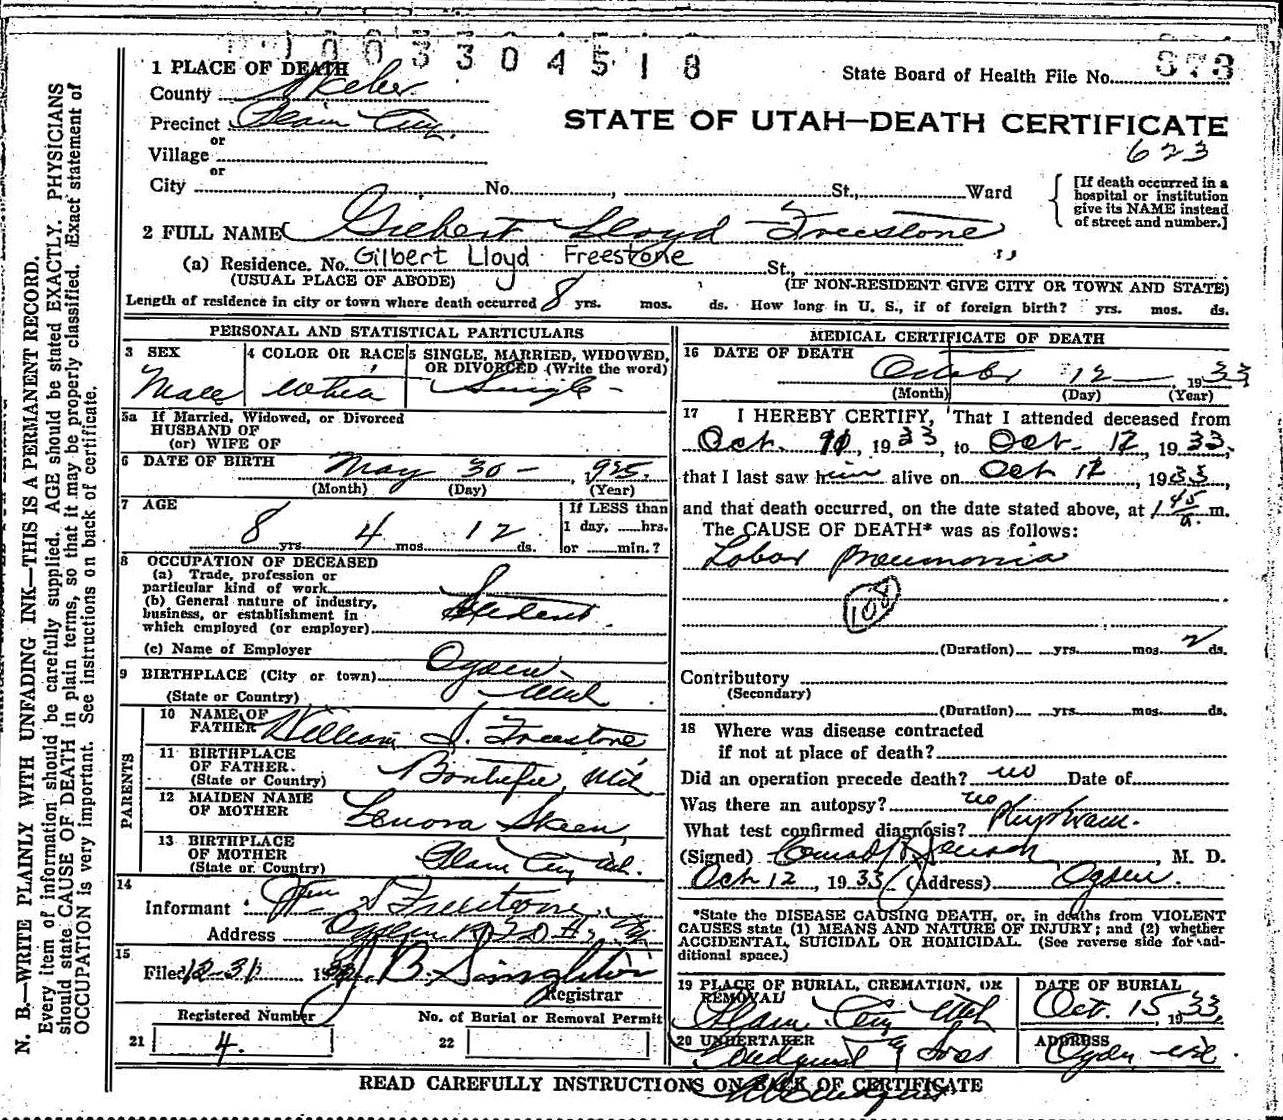 1003304518
1 PLACE OF DEATH
State Board of Health File No. 873
County Weber
Precinct Plain City.
STATE OF UTAH—DEATH CERTIFICATE
or
Village
623
or
City No. , St., Ward
[If death occurred in a hospital or institution give its NAME instead of street and number.]
2 FULL NAME Gilbert Lloyd Freestone
(a) Residence. No. Gilbert Lloyd Freestone St.,
(USUAL PLACE OF ABODE) (IF NON-RESIDENT GIVE CITY OR TOWN AND STATE)
Length of residence in city or town where death occurred 8 yrs. mos. ds. How long in U. S., if of foreign birth? yrs. mos. ds.
PERSONAL AND STATISTICAL PARTICULARS
3 SEX 4 COLOR OR RACE 5 SINGLE, MARRIED, WIDOWED,
OR DIVORCED (Write the word)
Male White Single
5a If Married, Widowed, or Divorced
HUSBAND OF
(or) WIFE OF
6 DATE OF BIRTH May 30 - 1925.
(Month) (Day) (Year)
7 AGE If LESS than
8 yrs. 4 mos. 12 ds. 1 day, hrs.
or min.?
8 OCCUPATION OF DECEASED
(a) Trade, profession or
particular kind of work
(b) General nature of industry,
business, or establishment in
which employed (or employer)
Student
(c) Name of Employer
9 BIRTHPLACE (City or town) Ogden
(State or Country) Utah
PARENTS
10 NAME OF
FATHER William J. Freestone
11 BIRTHPLACE
OF FATHER.
(State or Country) Bontifu, Uth
12 MAIDEN NAME
OF MOTHER Lenora Skeen
13 BIRTHPLACE
OF MOTHER
(State or Country) Plain City Uth.
14
Informant Wm S Freestone
Address Ogden R.F.D.
15
Filed 12-31 19 J B. Singleton
Registrar
Registered Number No. of Burial or Removal Permit
21 4. 22
MEDICAL CERTIFICATE OF DEATH
16 DATE OF DEATH
October 12 1933
(Month) (Day) (Year)
17 I HEREBY CERTIFY, That I attended deceased from
Oct. 1933 to Oct. 12 1933,
that I last saw him alive on Oct 12, 1933,
and that death occurred, on the date stated above, at 1 45 a. m.
The CAUSE OF DEATH* was as follows:
Lobar Pneumonia
108
(Duration) yrs. mos. 2 ds.
Contributory
(Secondary)
(Duration) yrs. mos. ds.
18 Where was disease contracted
if not at place of death?
Did an operation precede death? no Date of
Was there an autopsy? no
What test confirmed diagnosis? Phys Exam.
(Signed) Conrad B Jensen, M. D.
Oct 12, 1933 (Address) Ogden.
*State the DISEASE CAUSING DEATH, or, in deaths from VIOLENT
CAUSES state (1) MEANS AND NATURE OF INJURY; and (2) whether
ACCIDENTAL, SUICIDAL OR HOMICIDAL. (See reverse side for ad-
ditional space.)
19 PLACE OF BURIAL, CREMATION, OR
REMOVAL DATE OF BURIAL
Plain City Utah Oct. 15, 1933.
20 UNDERTAKER ADDRESS
Lindquist & Sons Ogden
READ CAREFULLY INSTRUCTIONS ON BACK OF CERTIFICATE
N. B.—WRITE PLAINLY WITH UNFADING INK—THIS IS A PERMANENT RECORD.
Every item of information should be carefully supplied. AGE should be stated EXACTLY. PHYSICIANS
should state CAUSE OF DEATH in plain terms, so that it may be properly classified. Exact statement of
OCCUPATION is very important. See instructions on back of certificate.